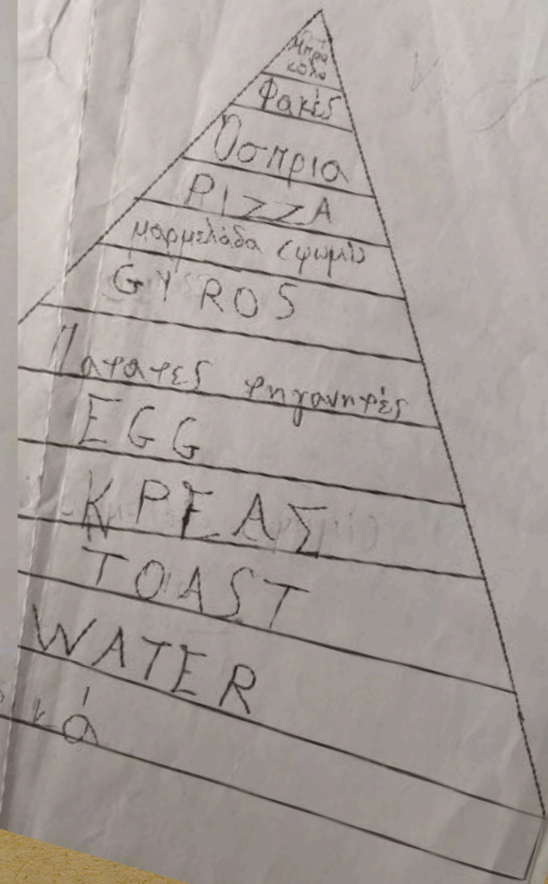 Μπρο
κολο
Φακές
Όσπρια
PIZZA
μαρμελάδα (ψωμί)
GYROS
Πατατες τηγανητές
EGG
ΚΡΕΑΣ
TOAST
WATER